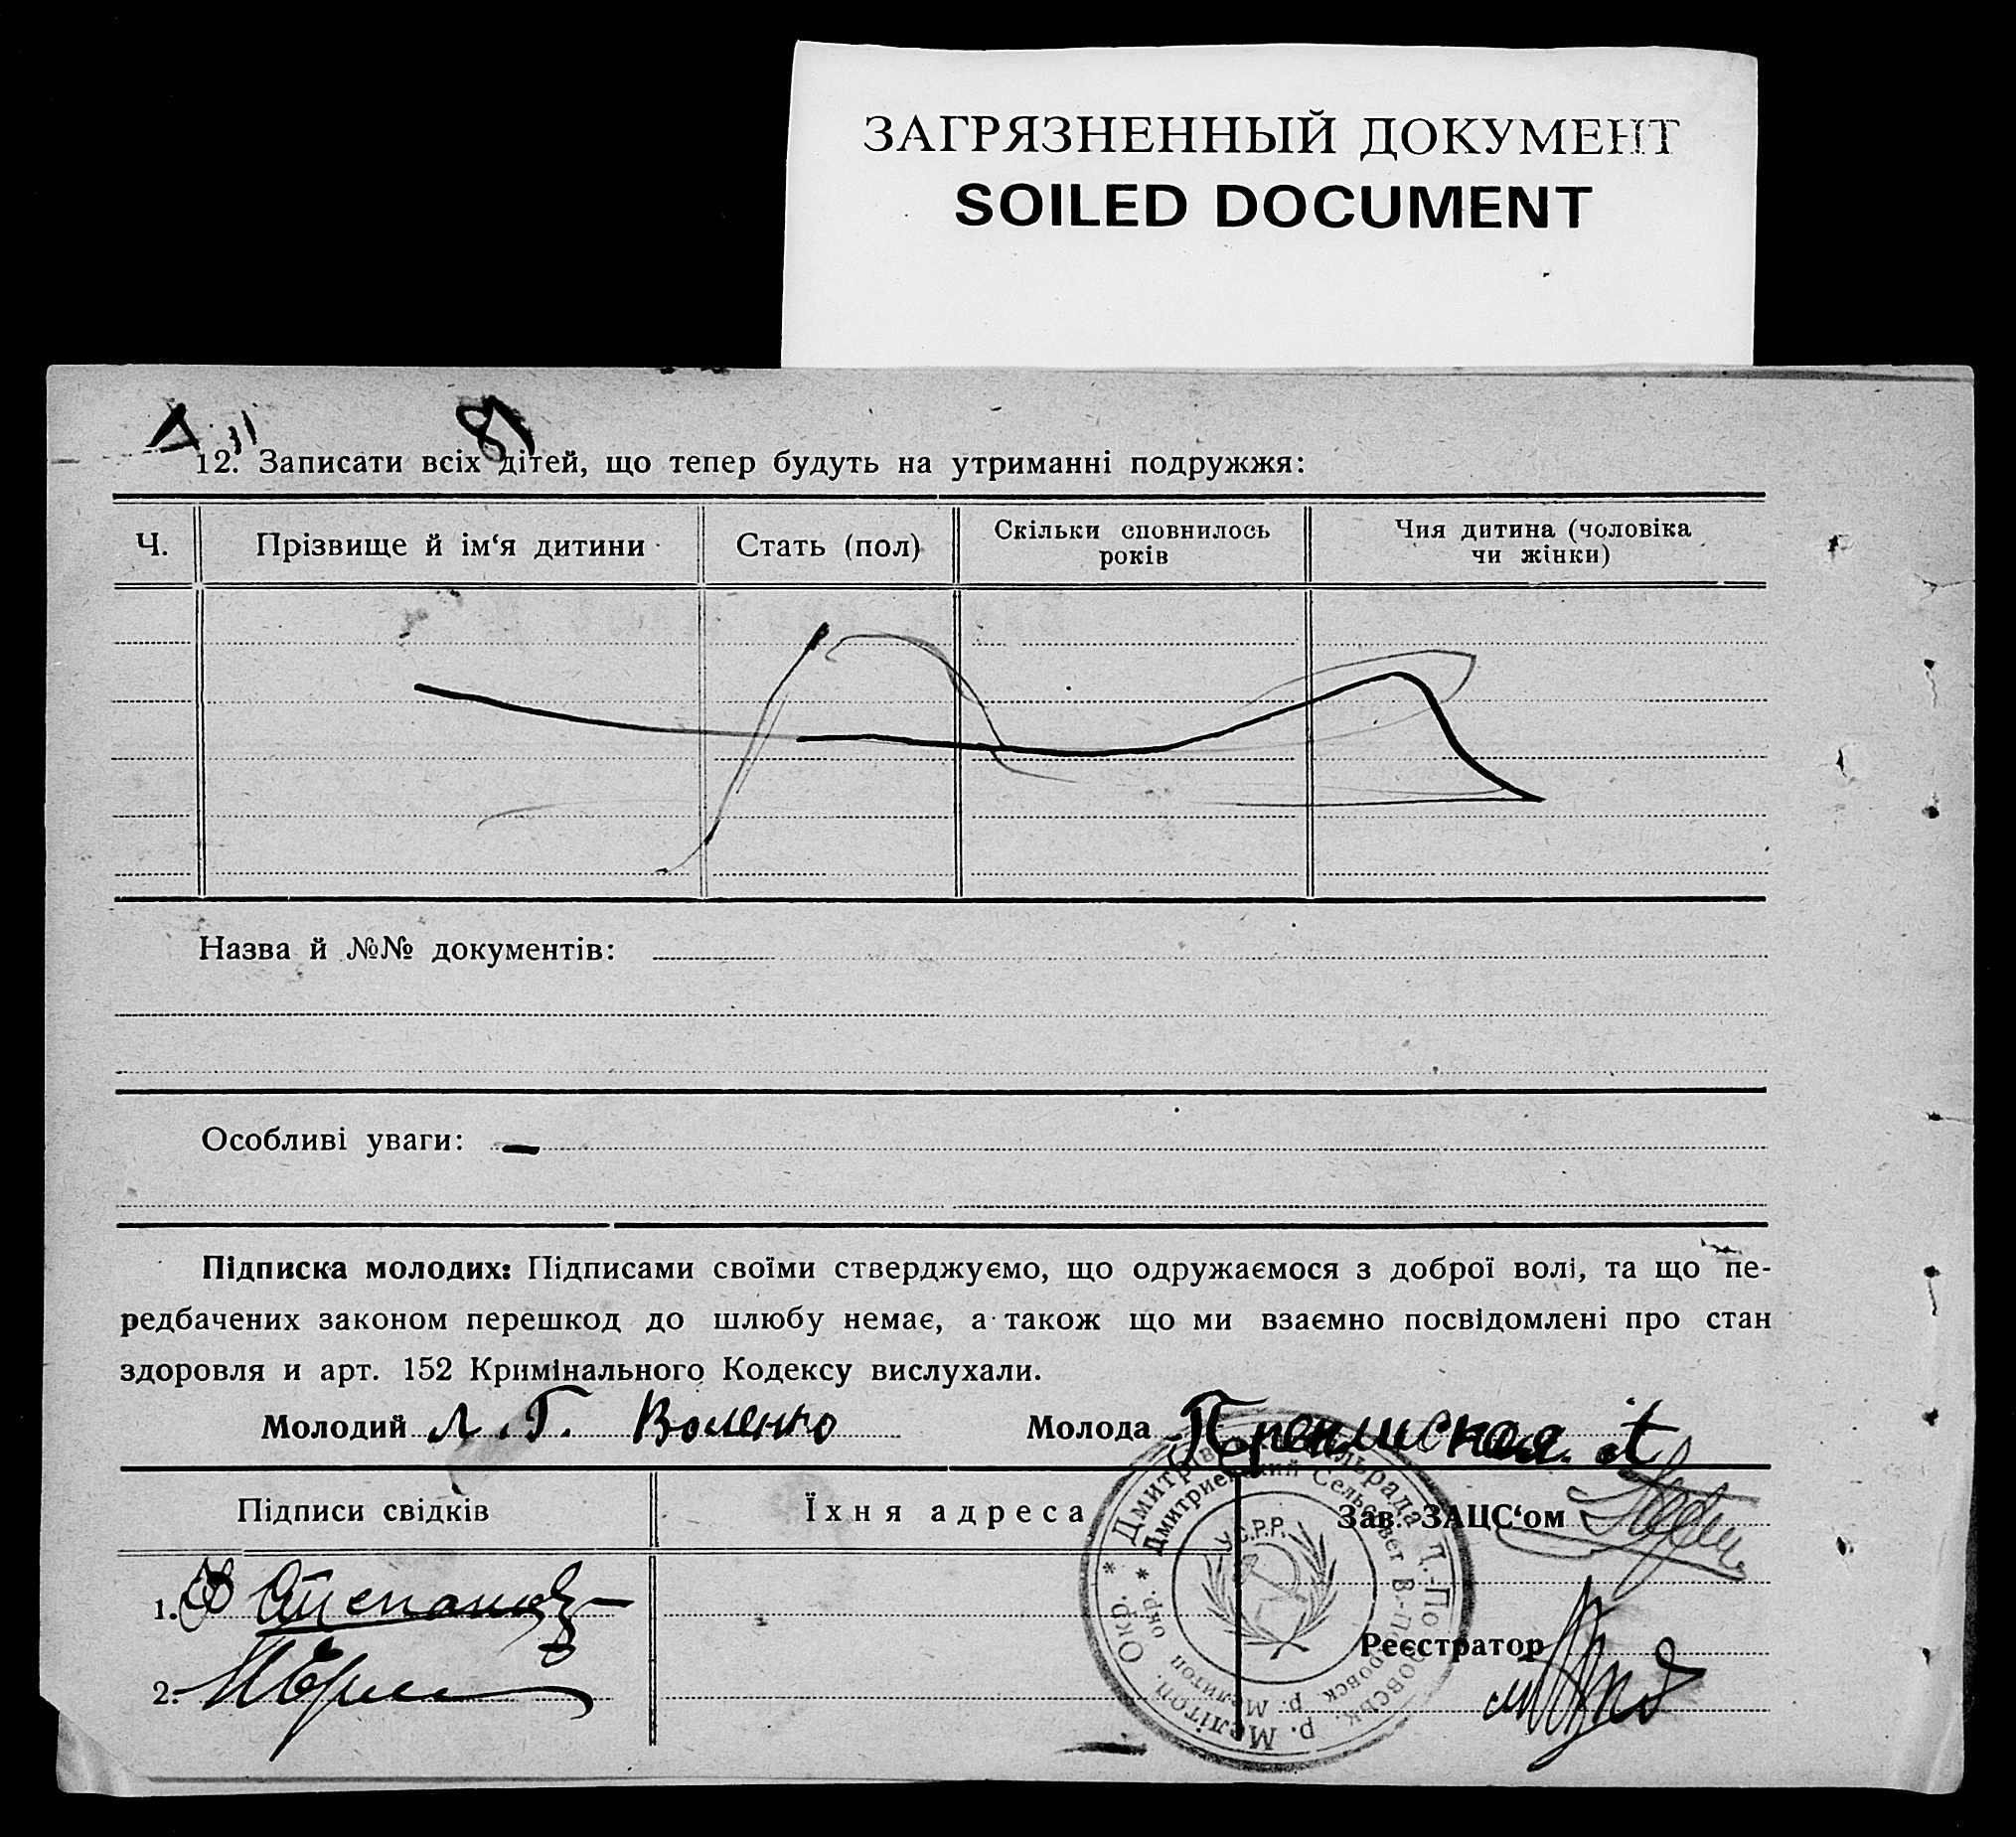 ЗАГРЯЗНЕННЫЙ ДОКУМЕНТ
SOILED DOCUMENT
12. Записати всіх дітей, що тепер будуть на утриманні подружжя:
Ч. Прізвище й ім‘я дитини Стать (пол) Скільки сповнилось років Чия дитина (чоловіка чи жінки)
Назва й №№ документів:
Особливі уваги: —
Підписка молодих: Підписами своїми стверджуємо, що одружаємося з доброї волі, та що пе-
редбачених законом перешкод до шлюбу немає, а також що ми взаємно посвідомлені про стан
здоровля и арт. 152 Кримінального Кодексу вислухали.
Молодий Л. Г. Воленко Молода
Підписи свідків Їхня адреса Зав. ЗАЦС‘ом
1.
Реєстратор
2.
У.С.Р.Р.